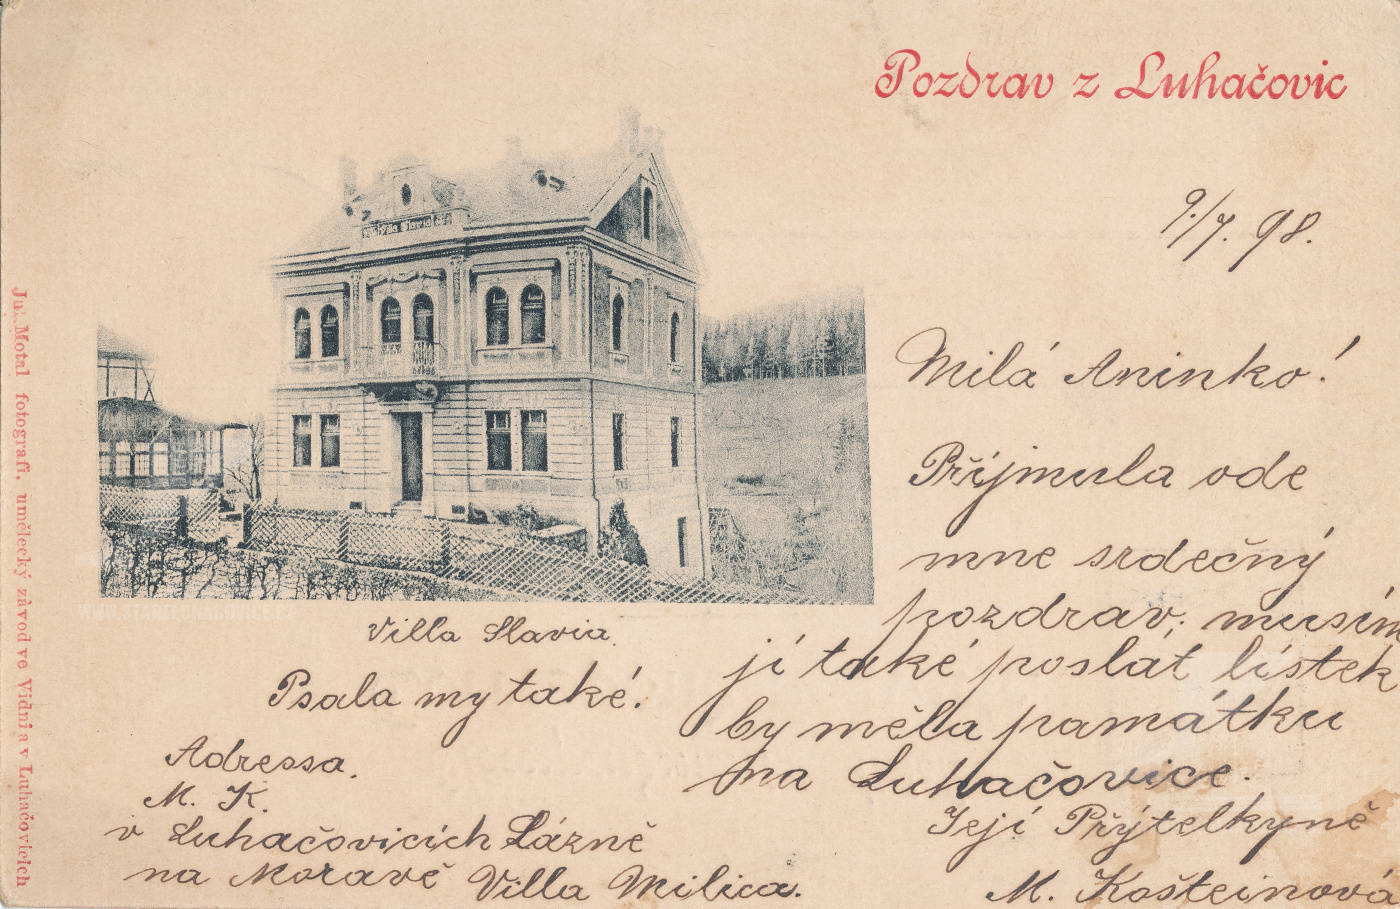 Pozdrav z Luhačovic
9./7. 98.
Milá Aninko!
Příjmula ode
mne srdečný
pozdrav, musím
jí také poslat lístek
by měla památku
na Luhačovice.
Její Přýtelkyně
M. Košteinová
Villa Slavia
Villa Slavia.
Psala my také.
Adressa.
M. K.
v Luhačovicích Lázně
na Moravě Villa Milica.
Motal fotografi. umělecký závod ve Vidni a v Luhačovicích